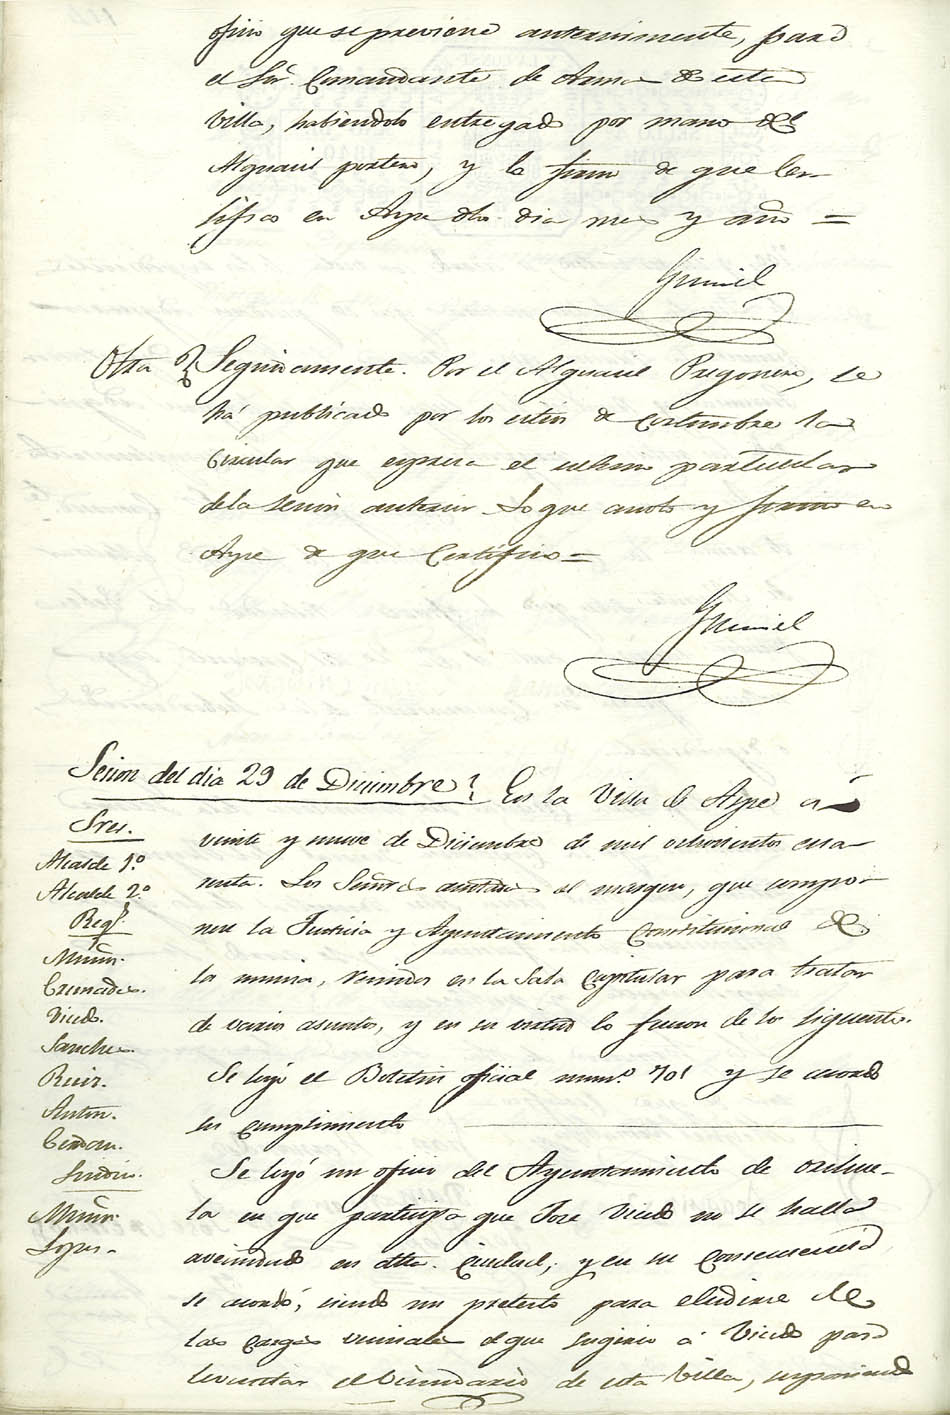 oficio que se previene anteriormente, para
el Sor. Comandante de Armas de esta
Villa, habiendolo entregado por mano del
Alguacil portero, y lo firmo de que Cer-
tifico en Aspe dho. dia mes y año =
Otra Seguidamente. Por el Alguacil Pregonero, se
há publicado por los sitios de costumbre la
Circular que espresa el ultimo particular
de la sesion anterior. Lo que anoto y firmo en
Aspe de que Certifico =
Sesion del dia 29 de Diciembre En la Villa de Aspe á
veinte y nueve de Diciembre de mil ochocientos cua-
renta. Los Señores anotados al margen, que compo-
nen la Justicia y Ayuntamiento Constitucional de
la misma, reunidos en la Sala Capitular para tratar
de varios asuntos, y en su virtud lo fueron de los siguientes.
Se leyó el Boletin oficial num.º 701 y se acordó
su cumplimiento
Se leyó un oficio del Ayuntamiento de orihue-
la en que participa que Jose Vicedo no se halla
avecindado en dha. Ciudad, y en su consecuencia
se acordó, siendo un pretesto para eludirse de
las cargas vecinales el que sugirio á Vicedo para
levantar el Vecindario de esta Villa,
Sres.
Alcalde 1.º
Alcalde 2.º
Reg.s
Muñoz.
Cremades.
Vicedo.
Sanchez.
Ruiz.
Anton.
Sindicos.
Muñoz.
Lopez.